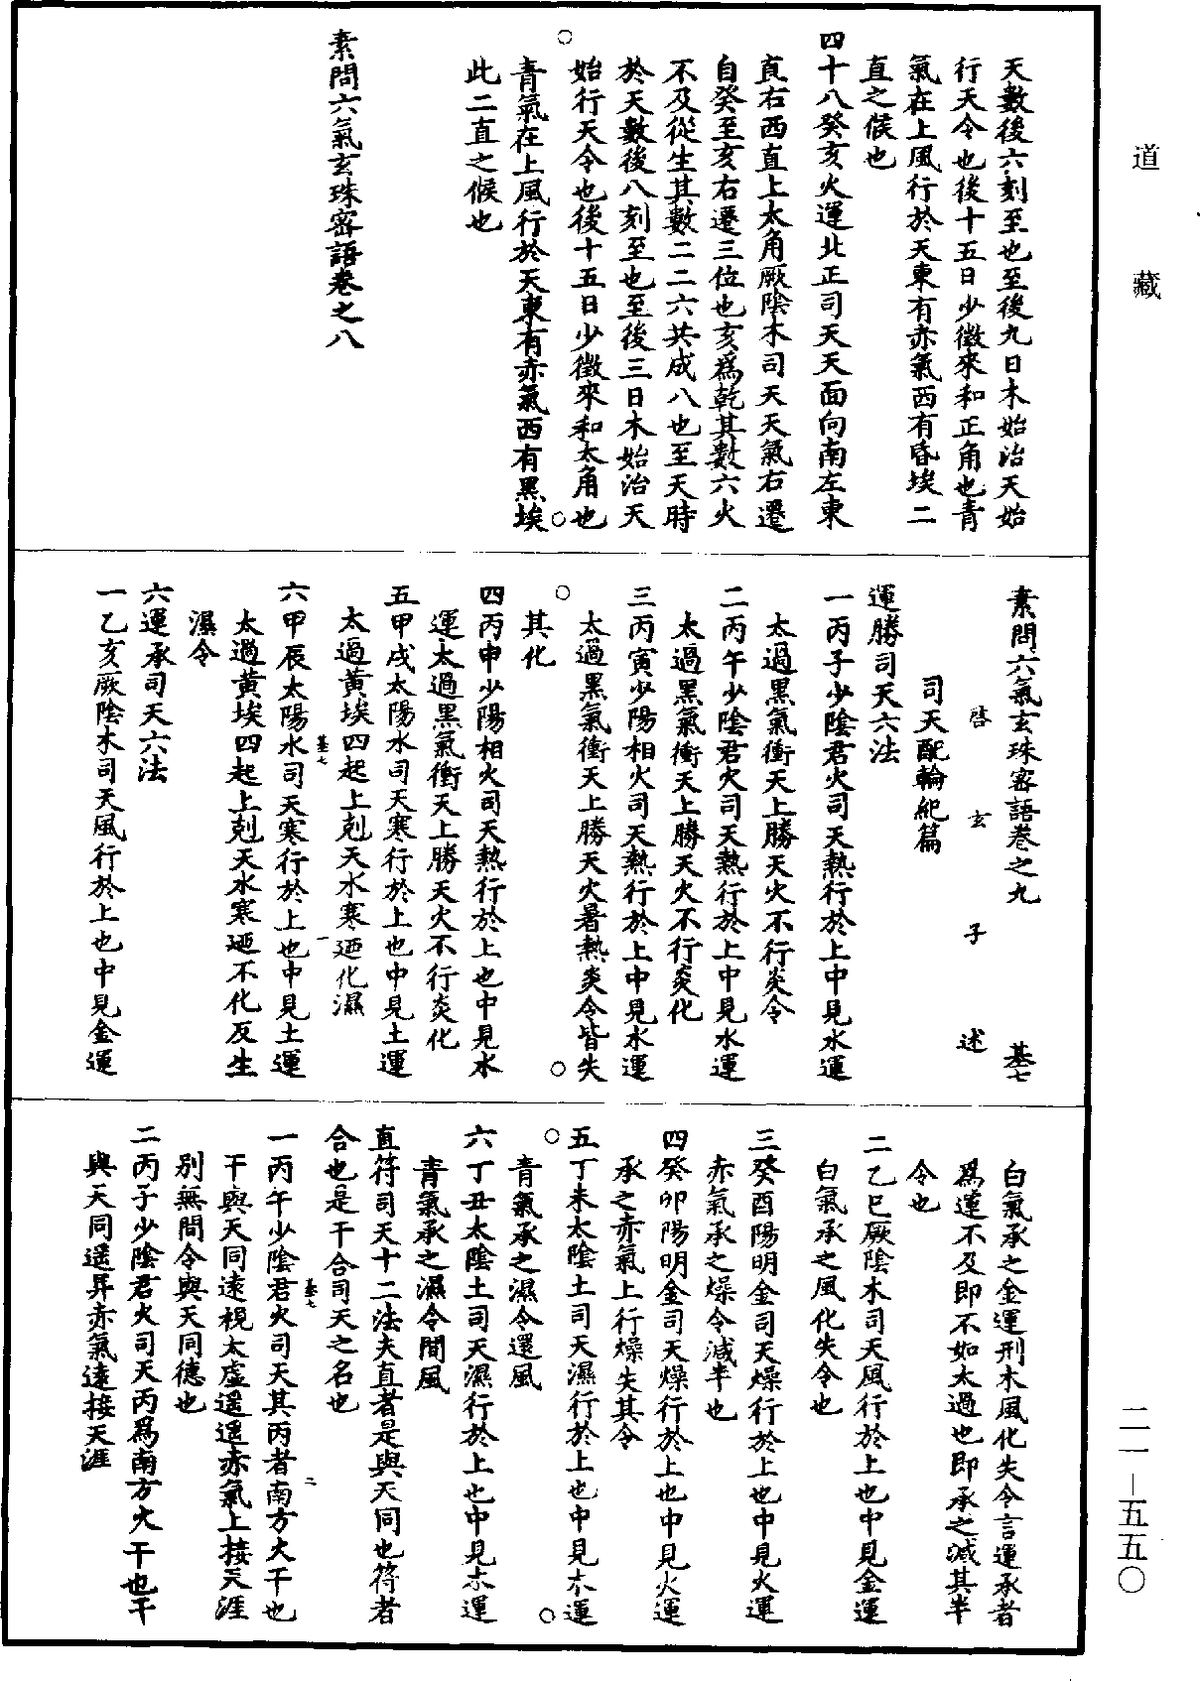 道藏
天數後六刻至也至後九日木始治天始
行天令也後十五日少徵來和正角也青
氣在上風行於天東有赤氣西有昏埃二
直之候也
四十八癸亥火運北正司天天面向南左東
直右西直上太角厥陰木司天天氣右遷
自癸至亥右遷三位也亥為乾其數六火
不及從生其數二二六共成八也至天時
於天數後八刻至也至後三日木始治天
始行天令也後十五日少徵來和太角也
青氣在上風行於天東有赤氣西有黑埃
此二直之候也
素問六氣玄珠密語卷之八
素問六氣玄珠密語卷之九 基七
啓玄子述
司天配輪紀篇
運勝司天六法
一丙子少陰君火司天熱行於上中見水運
太過黑氣衝天上勝天火不行炎令
二丙午少陰君火司天熱行於上中見水運
太過黑氣衝天上勝天火不行炎化
三丙寅少陽相火司天熱行於上中見水運
太過黑氣衝天上勝天火暑熱炎令皆失
其化
四丙申少陽相火司天熱行於上也中見水
運太過黑氣衝天上勝天火不行炎化
五甲戌太陽水司天寒行於上也中見土運
太過黃埃四起上剋天水寒迺化濕
基七 一
六甲辰太陽水司天寒行於上也中見土運
太過黃埃四起上剋天水寒迺不化反生
濕令
六運承司天六法
一乙亥厥陰木司天風行於上也中見金運
白氣承之金運刑木風化失令言運承者
為運不及即不如太過也即承之減其半
令也
二乙巳厥陰木司天風行於上也中見金運
白氣承之風化失令也
三癸酉陽明金司天燥行於上也中見火運
赤氣承之燥令減半也
四癸卯陽明金司天燥行於上也中見火運
承之赤氣上行燥失其令
五丁未太陰土司天濕行於上也中見木運
青氣承之濕令還風
六丁丑太陰土司天濕行於上也中見木運
青氣承之濕令間風
直符司天十二法夫直者是與天同也符者
合也是干合司天之名也
基七 二
一丙午少陰君火司天其丙者南方火干也
干與天同遠視太虛遥遥赤氣上接天涯
別無間令與天同德也
二丙子少陰君火司天丙為南方火干也干
與天同遥昇赤氣遠接天涯
二一－五五〇